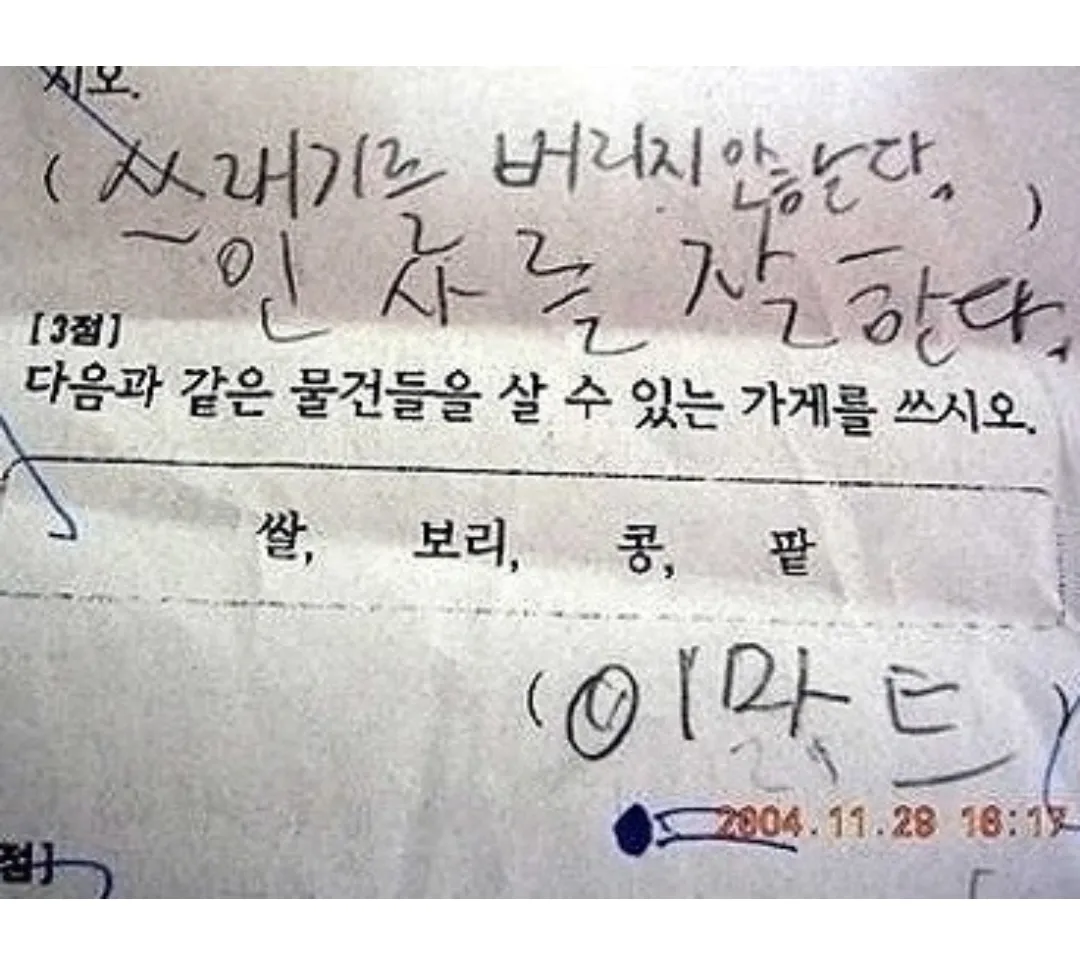 시오.
( 쓰래기르 버리지 안는다. )
인사를 잘 한다.
[3점]
다음과 같은 물건들을 살 수 있는 가게를 쓰시오.
쌀, 보리, 콩, 팥
( 이맡트 )
2004.11.28 16:17
점]